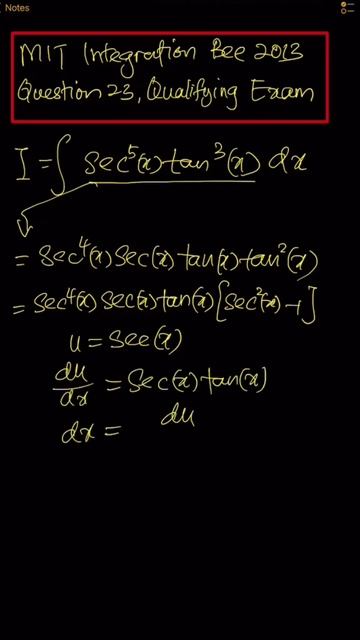 Notes
MIT Integration Bee 2013
Question 23, Qualifying Exam
I = ∫ sec⁵(x) tan³(x) dx
= sec⁴(x) sec(x) tan(x) tan²(x)
= sec⁴(x) sec(x) tan(x) [sec²(x) - 1]
u = sec(x)
du/dx = sec(x) tan(x)
du
dx =